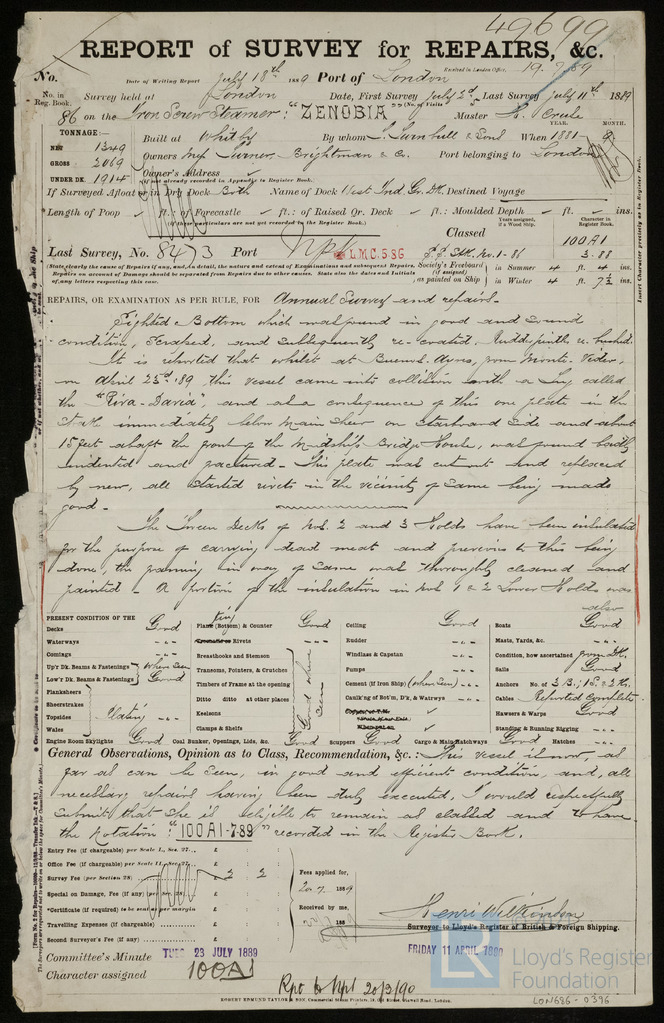 49699
REPORT of SURVEY for REPAIRS, &c.
No. Date of Writing Report July 18th 1889 Port of London Received in London Office, 19.
No. in Reg. Book. Survey held at London Date, First Survey July 2d Last Survey July 11th 1889
86 on the Iron Screw Steamer: "ZENOBIA" (No. of Visits ) Master
TONNAGE:—
NET 1349
GROSS 2069
UNDER DK. 1914
Built at Whitby By whom T. Turnbull & Sons When 1881 YEAR. MONTH. 9
Owners Turner, Brightman & Co. Port belonging to London
Owner's Address
(if not already recorded in Appendix to Register Book.)
If Surveyed Afloat or in Dry Dock Both Name of Dock West Ind. Gr. Dk. Destined Voyage
Length of Poop ft.: of Forecastle ft.: of Raised Qr. Deck ft.: Moulded Depth ft. ins.
(If these particulars are not yet recorded in the Register Book.)
Classed
Years assigned, if a Wood Ship.
Character in Register Book.
100A1
3.88
Last Survey, No. 8473 Port Npt L.M.C. 5.86
(State clearly the cause of Repairs if any, and, in detail, the nature and extent of Examinations and subsequent Repairs.
Repairs on account of Damage should be separated from Repairs due to other causes. State also the dates and Initials
of any letters respecting this case.
Society's Freeboard (if assigned) as painted on Ship
in Summer 4 ft. 4 ins.
in Winter 4 ft. 7½ ins.
REPAIRS, OR EXAMINATION AS PER RULE, FOR Annual Survey and repairs.
Sighted Bottom which was found in good and sound
condition, scraped, and subsequently re-coated. Rudder pintle re bushed.
It is reported that whilst at Buenos Ayres, from Monte Video,
on April 23d '89, this vessel came into collision with a Tug called
the and as a consequence of this one plate in the
Strake immediately below Main Sheer on Starboard side and about
15 feet abaft the front of the Midship Bridge House, was found badly
indented and fractured. This plate was cut out and replaced
by new, all started rivets in the vicinity of same being made
good.
The Tween Decks of Nos. 2 and 3 Holds have been insulated
for the purpose of carrying dead meat and previous to this being
done, the framing in way of same was thoroughly cleaned and
painted. A portion of the insulation in Nos 1 & 2 Lower Holds was
also
PRESENT CONDITION OF THE
Decks Good
Waterways
Comings
Up'r Dk. Beams & Fastenings when seen
Low'r Dk. Beams & Fastenings Good
Planksheers
Sheerstrakes
Topsides Plating
Wales
Engine Room Skylights Good
Plating (Bottom) & Counter Good
Rivets
Breasthooks and Stemson
Transoms, Pointers, & Crutches
Timbers of Frame at the opening
Ditto ditto at other places
Keelsons
Clamps & Shelfs
Good where seen
Coal Bunker, Openings, Lids, &c. Good
Ceiling Good
Rudder
Windlass & Capstan
Pumps
Cement (if Iron Ship) (when seen)
Caulk'ng of Bot'm, D'k, & Watrwys
Scuppers Good Cargo & Main Hatchways Good
Boats Good
Masts, Yards, &c.
Condition, how ascertained from Dk.
Sails Good
Anchors No. of 3 B.; 1 S. & 2 K.
Cables Reported Complete
Hawsers & Warps Good
Standing & Running Rigging
Hatches
General Observations, Opinion as to Class, Recommendation, &c.: This vessel is now, as
far as can be seen, in good and efficient condition, and, all
necessary repairs having been duly executed, I would respectfully
submit that she is eligible to remain as classed and to have
the Notation: "100A1-7.89" recorded in the Register Book.
Entry Fee (if chargeable) per Scale I., Sec. 27... £
Office Fee (if chargeable) per Scale II., Sec. 27... £
Survey Fee (per Section 28) £ 2 : 2
Special or Damage, Fee (if any) (per Sec. 28) £
*Certificate (if required) to be sent as per margin
Travelling Expenses (if chargeable) £
Second Surveyor's Fee (if any) £
Fees applied for,
20.7. 1889
Received by me,
188
Henri Wilkinson
Surveyor to Lloyd's Register of British & Foreign Shipping.
Committee's Minute TUES 23 JULY 1889 FRIDAY 11 APRIL
Character assigned 100A1
Rpt to Npt 20/3/90
ROBERT EDMUND TAYLOR & SON, Commercial Steam Printers, 19, Old Street, Goswell Road, London.
Lloyd's Register
Foundation
LON686-0396